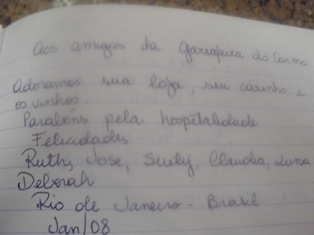 Aos amigos da Garrafeira do Carmo,
Adoramos sua loja, seu carinho e
os vinhos.
Parabéns pela hospitalidade
Felicidades
Ruth, Jose, Suely, Claudia, Luna
Deborah
Rio de Janeiro - Brasil
Jan/08